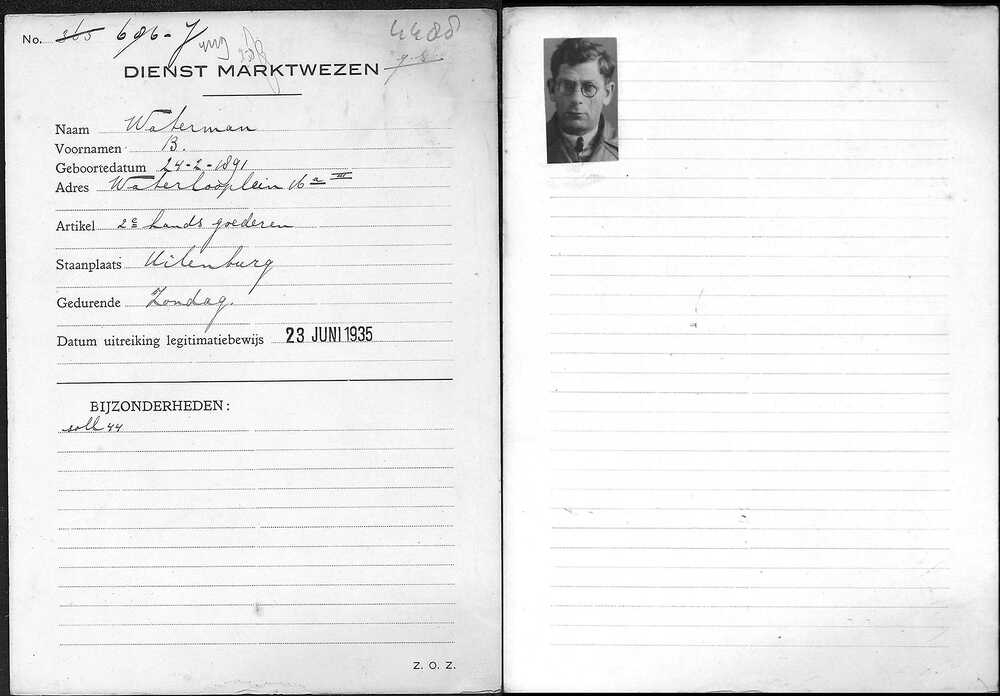 No. 365 696-J 4488
DIENST MARKTWEZEN
Naam Waterman
Voornamen B.
Geboortedatum 24-2-1891
Adres Waterlooplein 16 a III
Artikel 2e hands goederen
Staanplaats Uilenburg
Gedurende Zondag.
Datum uitreiking legitimatiebewijs 23 JUNI 1935
BIJZONDERHEDEN:
soll 44
Z. O. Z.